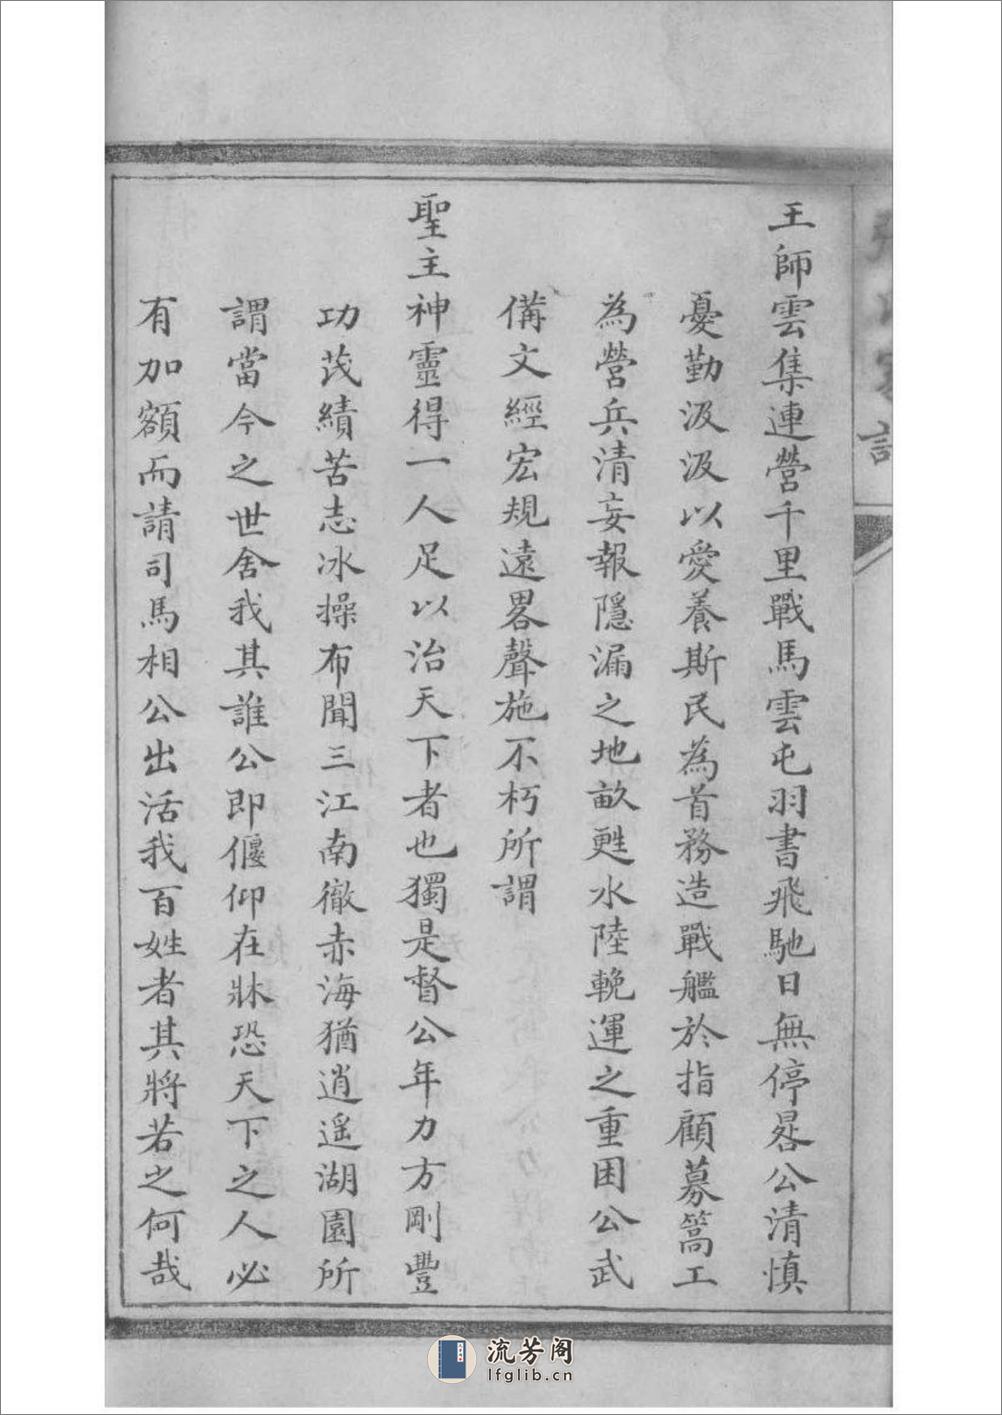 王師雲集連營千里戰馬雲屯羽書飛馳日無停晷公清慎
憂勤汲汲以愛養斯民為首務造戰艦於指顧募篙工
為營兵清妄報隱漏之地畝甦水陸輓運之重困公武
備文經宏規遠畧聲施不朽所謂
聖主神靈得一人足以治天下者也獨是督公年力方剛豐
功茂績苦志冰操布聞三江南徹赤海猶逍遥湖園所
謂當今之世舍我其誰公即偃仰在牀恐天下之人必
有加額而請司馬相公出活我百姓者其將若之何哉
流芳阁
lfglib.cn